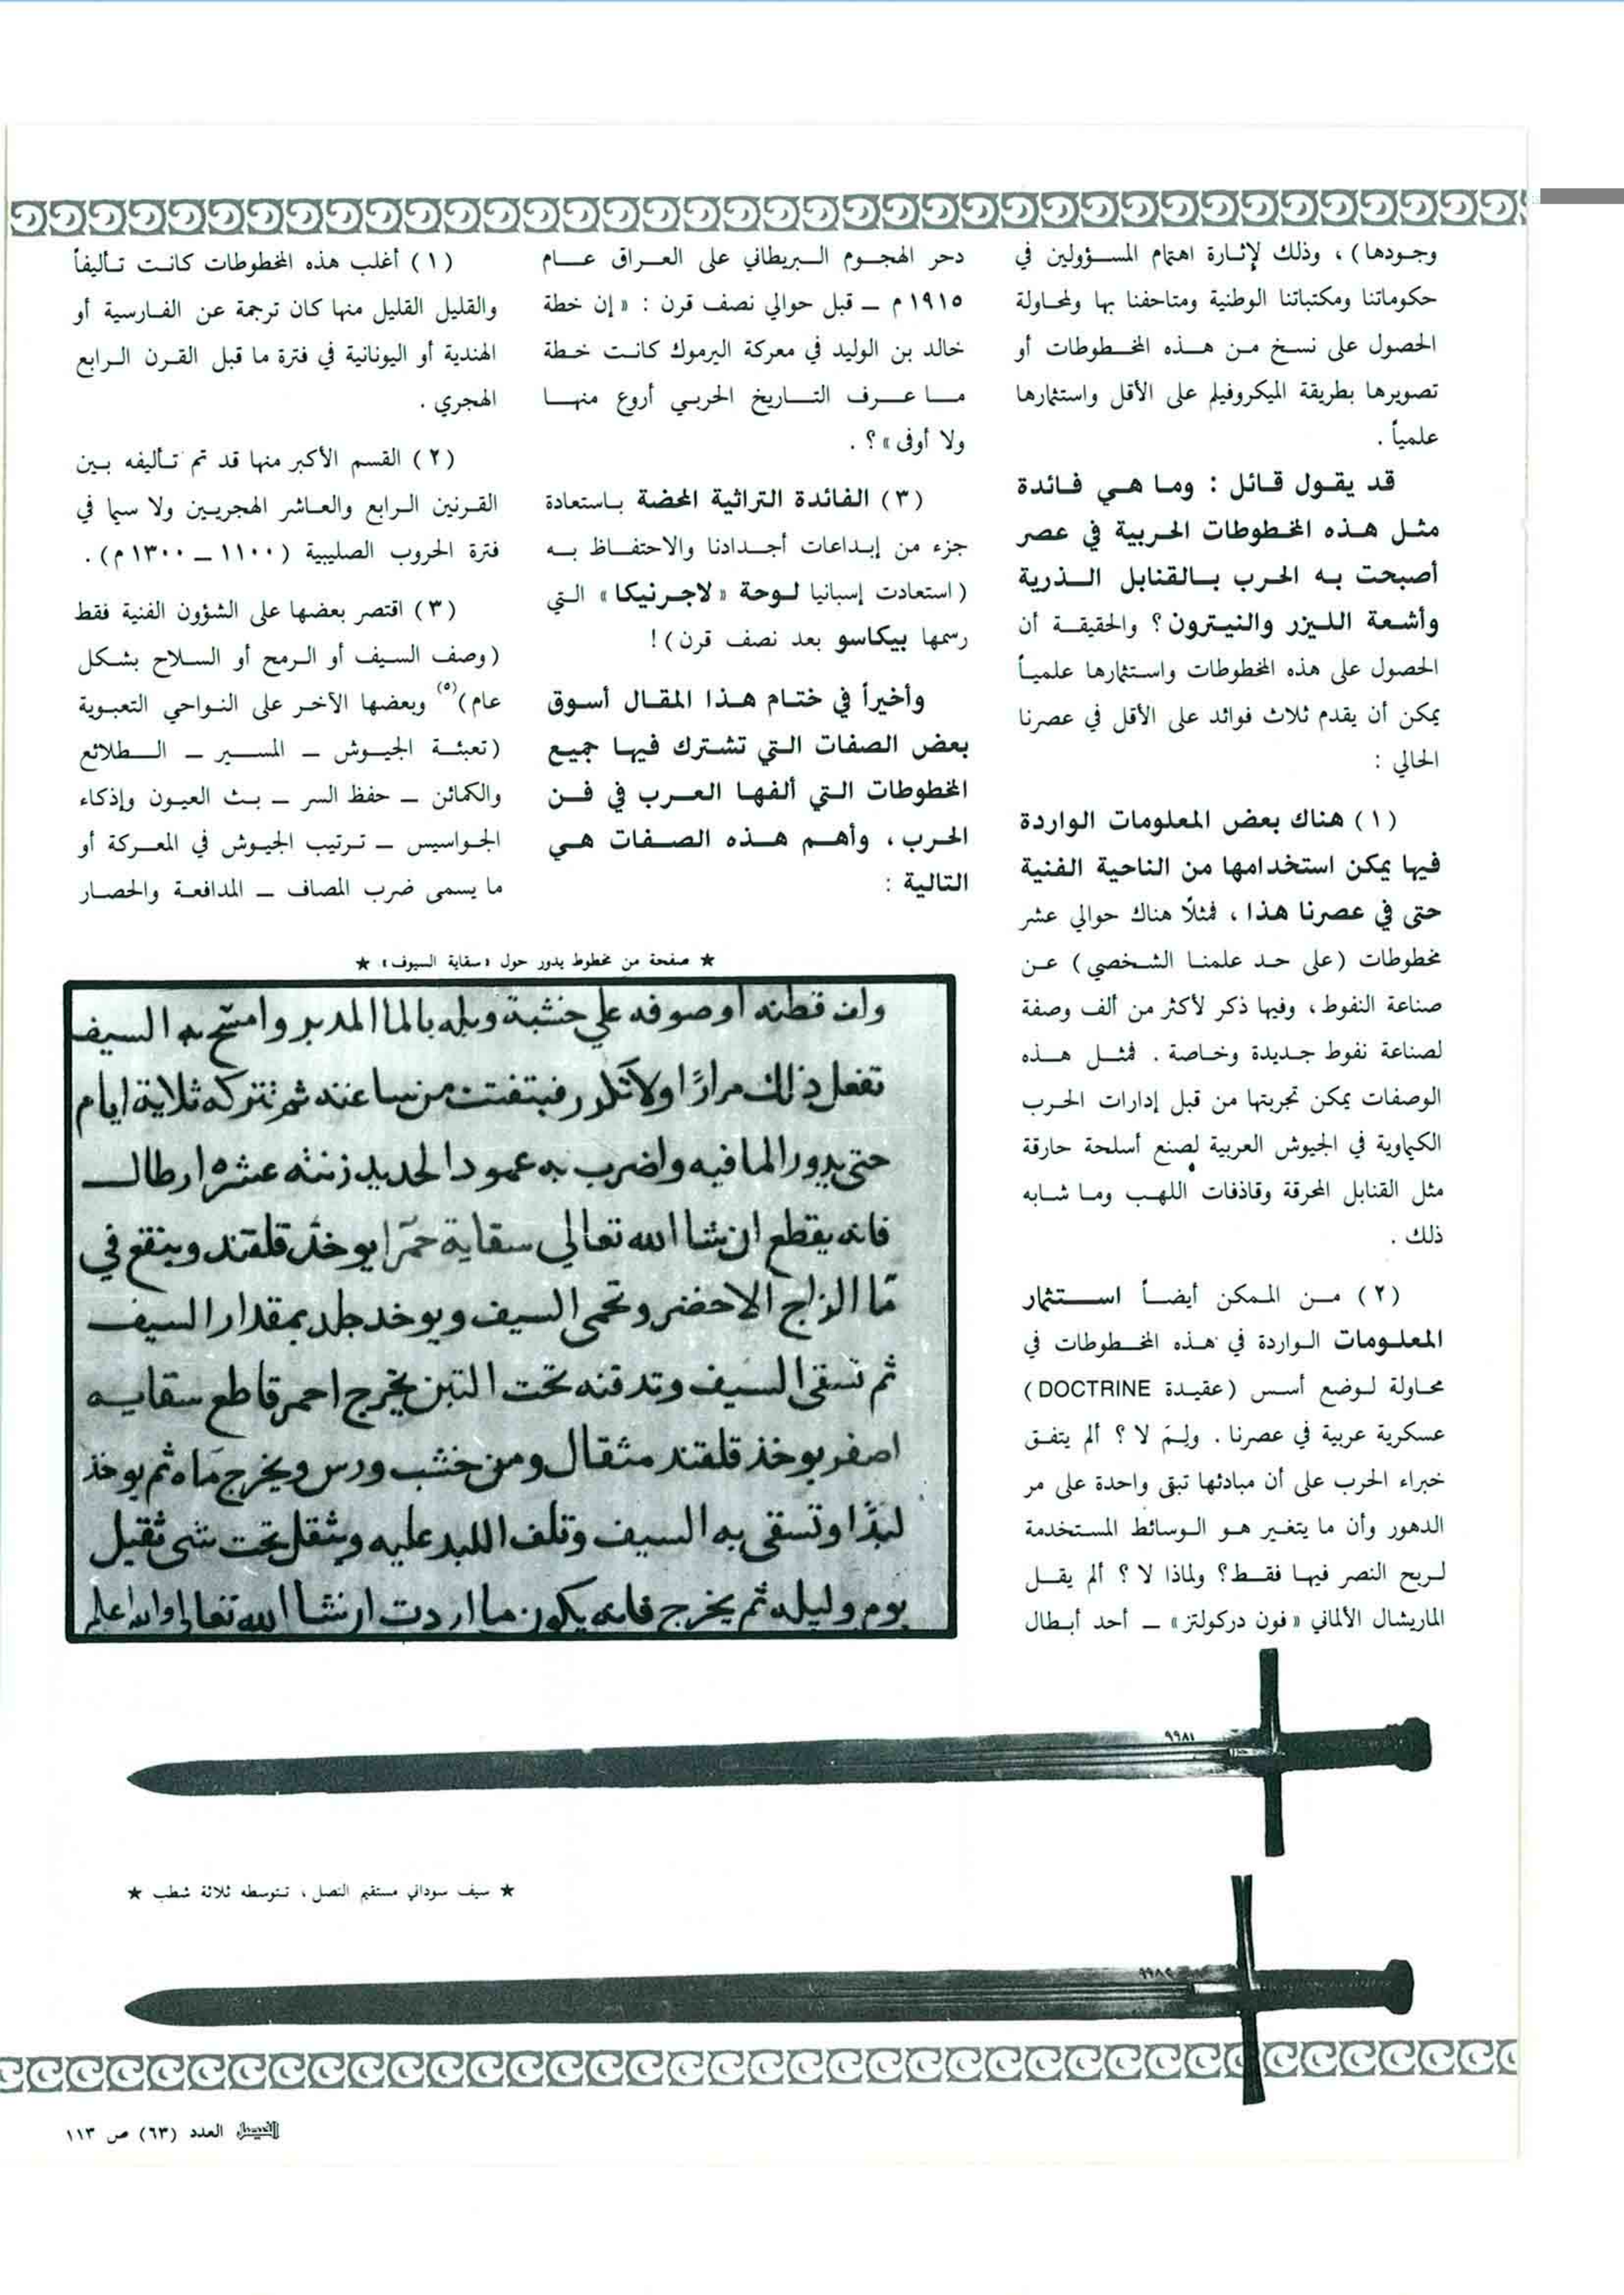 وجودها) ، وذلك لإثارة اهتمام المسؤولين في
حكوماتنا ومكتباتنا الوطنية ومتاحفنا بها ولمحاولة
الحصول على نسخ من هذه المخطوطات أو
تصويرها بطريقة الميكروفيلم على الأقل واستثمارها
علمياً .
قد يقول قائل : وما هي فائدة
مثل هذه المخطوطات الحربية في عصر
أصبحت به الحرب بالقنابل الذرية
وأشعة الليزر والنيترون ؟ والحقيقة أن
الحصول على هذه المخطوطات واستثمارها علمياً
يمكن أن يقدم ثلاث فوائد على الأقل في عصرنا
الحالي :
(١) هناك بعض المعلومات الواردة
فيها يمكن استخدامها من الناحية الفنية
حتى في عصرنا هذا ، فمثلاً هناك حوالي عشر
مخطوطات (على حد علمنا الشخصي) عن
صناعة النفوط ، وفيها ذكر لأكثر من ألف وصفة
لصناعة نفوط جديدة وخاصة . فمثل هذه
الوصفات يمكن تجربتها من قبل إدارات الحرب
الكيماوية في الجيوش العربية لصنع أسلحة حارقة
مثل القنابل المحرقة وقاذفات اللهب وما شابه
ذلك .
(٢) من الممكن أيضاً استثمار
المعلومات الواردة في هذه المخطوطات في
محاولة لوضع أسس (عقيدة DOCTRINE)
عسكرية عربية في عصرنا . ولِمَ لا ؟ ألم يتفق
خبراء الحرب على أن مبادئها تبقى واحدة على مر
الدهور وأن ما يتغير هو الوسائط المستخدمة
لربح النصر فيها فقط ؟ ولماذا لا ؟ ألم يقل
الماريشال الألماني «فون دركولتز» ــ أحد أبطال
دحر الهجوم البريطاني على العراق عام
١٩١٥ م ــ قبل حوالي نصف قرن : «إن خطة
خالد بن الوليد في معركة اليرموك كانت خطة
ما عرف التاريخ الحربي أروع منها
ولا أوفى» ؟ .
(٣) الفائدة التراثية المحضة باستعادة
جزء من إبداعات أجدادنا والاحتفاظ به
(استعادت إسبانيا لوحة «لاجرنيكا» التي
رسمها بيكاسو بعد نصف قرن) !
وأخيراً في ختام هذا المقال أسوق
بعض الصفات التي تشترك فيها جميع
المخطوطات التي ألفها العرب في فن
الحرب ، وأهم هذه الصفات هي
التالية :
(١) أغلب هذه المخطوطات كانت تأليفاً
والقليل القليل منها كان ترجمة عن الفارسية أو
الهندية أو اليونانية في فترة ما قبل القرن الرابع
الهجري .
(٢) القسم الأكبر منها قد تم تأليفه بين
القرنين الرابع والعاشر الهجريين ولا سيما في
فترة الحروب الصليبية (١١٠٠ ــ ١٣٠٠ م) .
(٣) اقتصر بعضها على الشؤون الفنية فقط
(وصف السيف أو الرمح أو السلاح بشكل
عام)(٥) وبعضها الآخر على النواحي التعبوية
(تعبئة الجيوش ــ المسير ــ الطلائع
والكمائن ــ حفظ السر ــ بث العيون وإذكاء
الجواسيس ــ ترتيب الجيوش في المعركة أو
ما يسمى ضرب المصاف ــ المدافعة والحصار
★ صفحة من مخطوط يدور حول «سقاية السيوف» ★
قطنه او صوفه علي خشبة وبله بالما المدبر وامسح به السيف
تفعل ذلك مرارًا ولا ثم تتركه ثلاثة ايام
حتى يدور الما فيه واضرب به عمود الحديد زنته عشره ارطال
فانه يقطع ان شا الله تعالي سقاية حمرا يوخذ قلقند وينقع في
ما الزاج الاخضر وتحمى السيف ويوخد جلد بمقدار السيف
ثم تسقى السيف وتدفنه تحت التبن يخرج احمر قاطع سقايه
اصفر يوخذ قلقند مثقال ومن خشب ورس ويخرج ماه ثم يوخذ
لبدًا وتسقى به السيف وتلف اللبد عليه وتثقل تحت شى ثقيل
يوم وليله ثم يخرج فانه يكون ما اردت ان شا الله تعالي والله اعلم
٩٩٨١
★ سيف سوداني مستقيم النصل ، تتوسطه ثلاثة شطب ★
٩٩٨٢
الفيصل العدد (٦٣) ص ١١٣